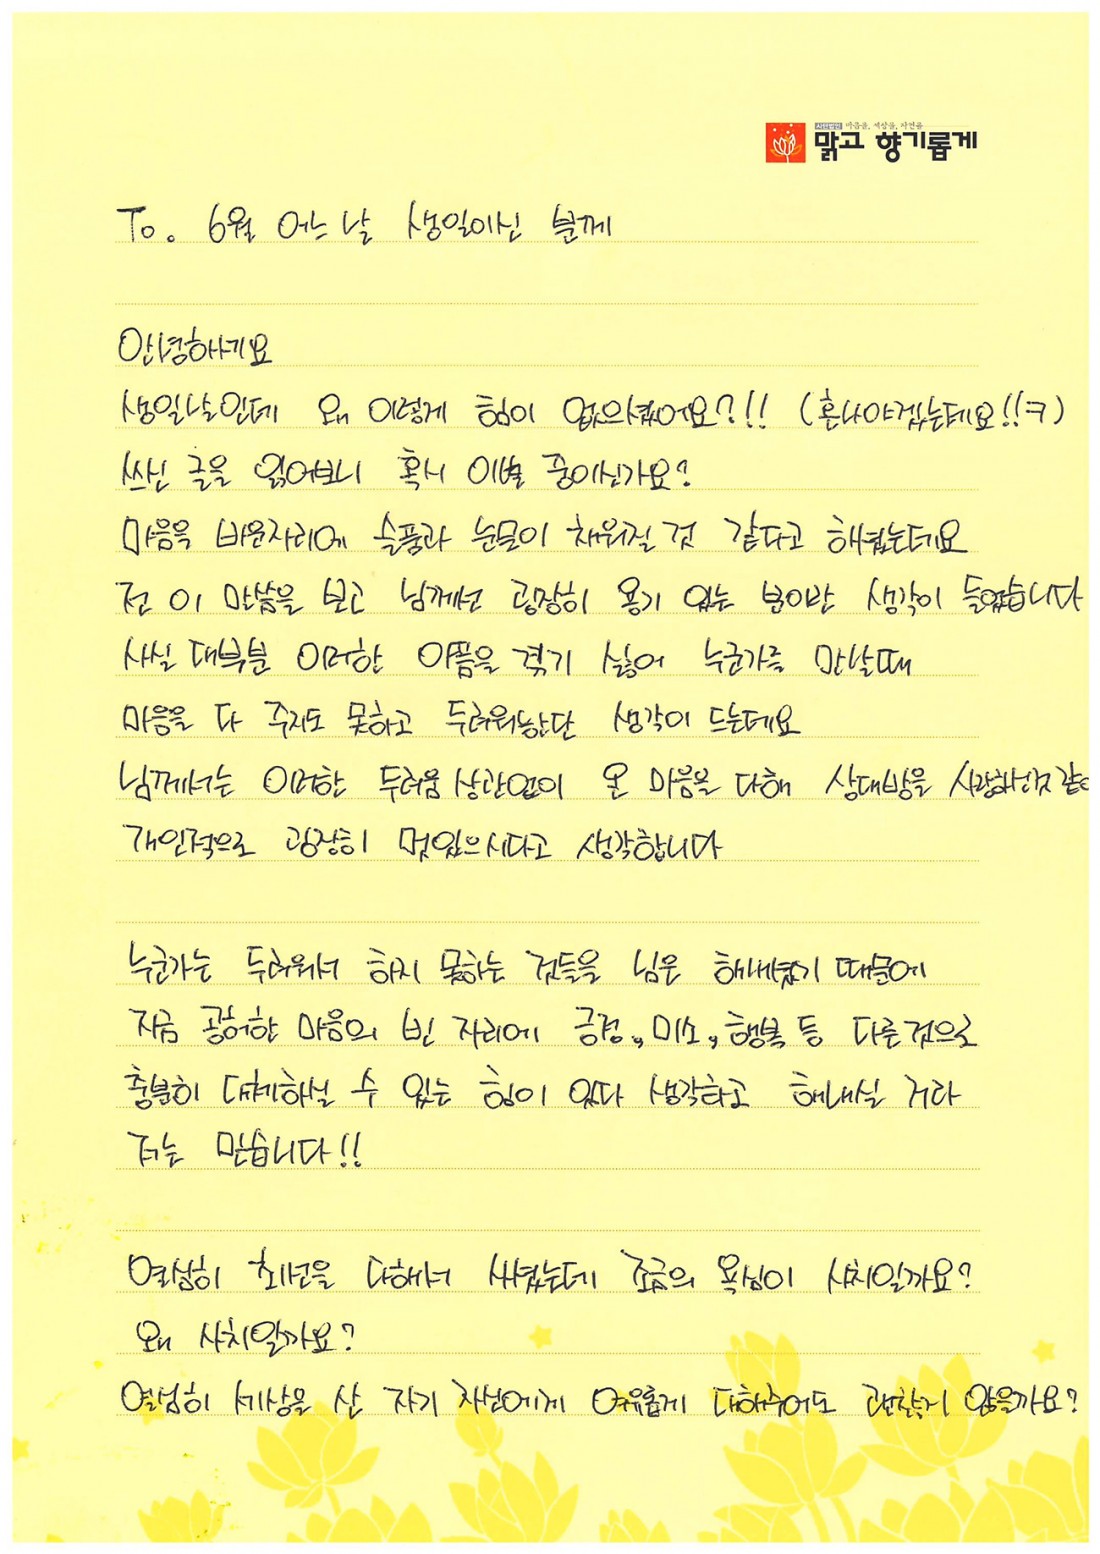 사단법인 마음을, 세상을, 자연을
맑고 향기롭게
To. 6월 어느 날 생일이신 분께
안녕하세요
생일날인데 왜 이렇게 힘이 없으셨어요?!! (혼나야겠는데요!!ㅋ)
쓰신 글을 읽어보니 혹시 이별 중이신가요?
마음을 비운자리에 슬픔과 눈물이 채워질 것 같다고 해셨는데요
전 이 말씀을 보고 님께선 굉장히 용기 있는 분이란 생각이 들었습니다
사실 대부분 이러한 아픔을 겪기 싫어 누군가를 만날때
마음을 다 주지도 못하고 두려워한단 생각이 드는데요
님께서는 이러한 두려움 상관없이 온 마음을 다해 상대방을 사랑하신것 같아
개인적으로 굉장히 멋있으시다고 생각합니다
누군가는 두려워서 하지 못하는 것들을 님은 해내셨기 때문에
지금 공허한 마음의 빈 자리에 긍정, 미소, 행복 등 다른것으로
충분히 대체하실 수 있는 힘이 있다 생각하고 해내실 거라
저는 믿습니다!!
열심히 최선을 다해서 사셨는데 조금의 욕심이 사치일까요?
왜 사치일까요?
열심히 세상을 산 자기 자신에게 여유롭게 대해주어도 괜찮지 않을까요?